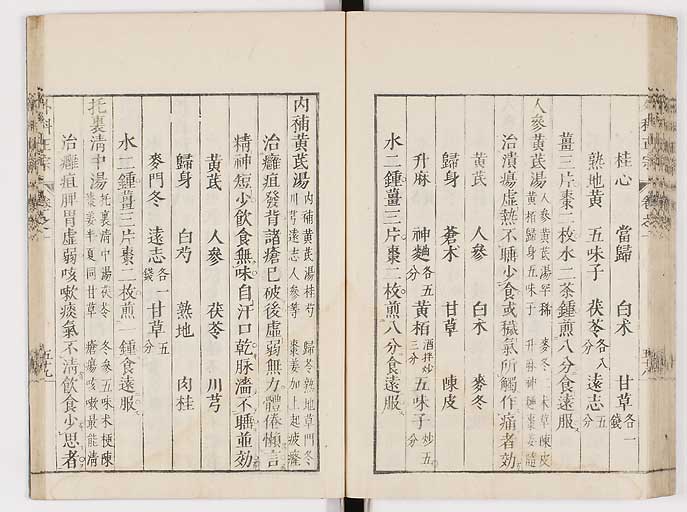 桂心 當歸 白朮 甘草各一錢
熟地黃 五味子 茯苓各八分 遠志五分
薑三片棗二枚水二茶鍾煎八分食遠服
人參黃芪湯 人參黃芪湯罕稀 麥冬朮草陳皮 黃栢歸身五味子 升麻神麯棗姜隨
治潰瘍虛熱不睡少食或穢氣所觸作痛者効
黃芪 人參 白朮 麥冬
歸身 蒼朮 甘草 陳皮
升麻 神麯各五分 黃栢酒拌炒三分 五味子炒五分
水二鍾薑三片棗二枚煎八分食遠服
內補黃芪湯 內補黃芪湯桂芍 歸冬熟地草門冬 川芎遠志人參苓 棗姜加上起疲癃
治癰疽發背諸瘡已破後虛弱無力體倦懶言
精神短少飲食無味自汗口乾脉濇不睡並効
黃芪 人參 茯苓 川芎
歸身 白芍 熟地 肉桂
麥門冬 遠志各一錢 甘草五分
水二鍾薑三片棗二枚煎一鍾食遠服
托裏清中湯 托裏清中湯茯苓 冬參五味朮梗陳 棗姜半夏同甘草 瘡瘍咳嗽最能清
治癰疽脾胃虛弱咳嗽痰氣不清飲食少思者